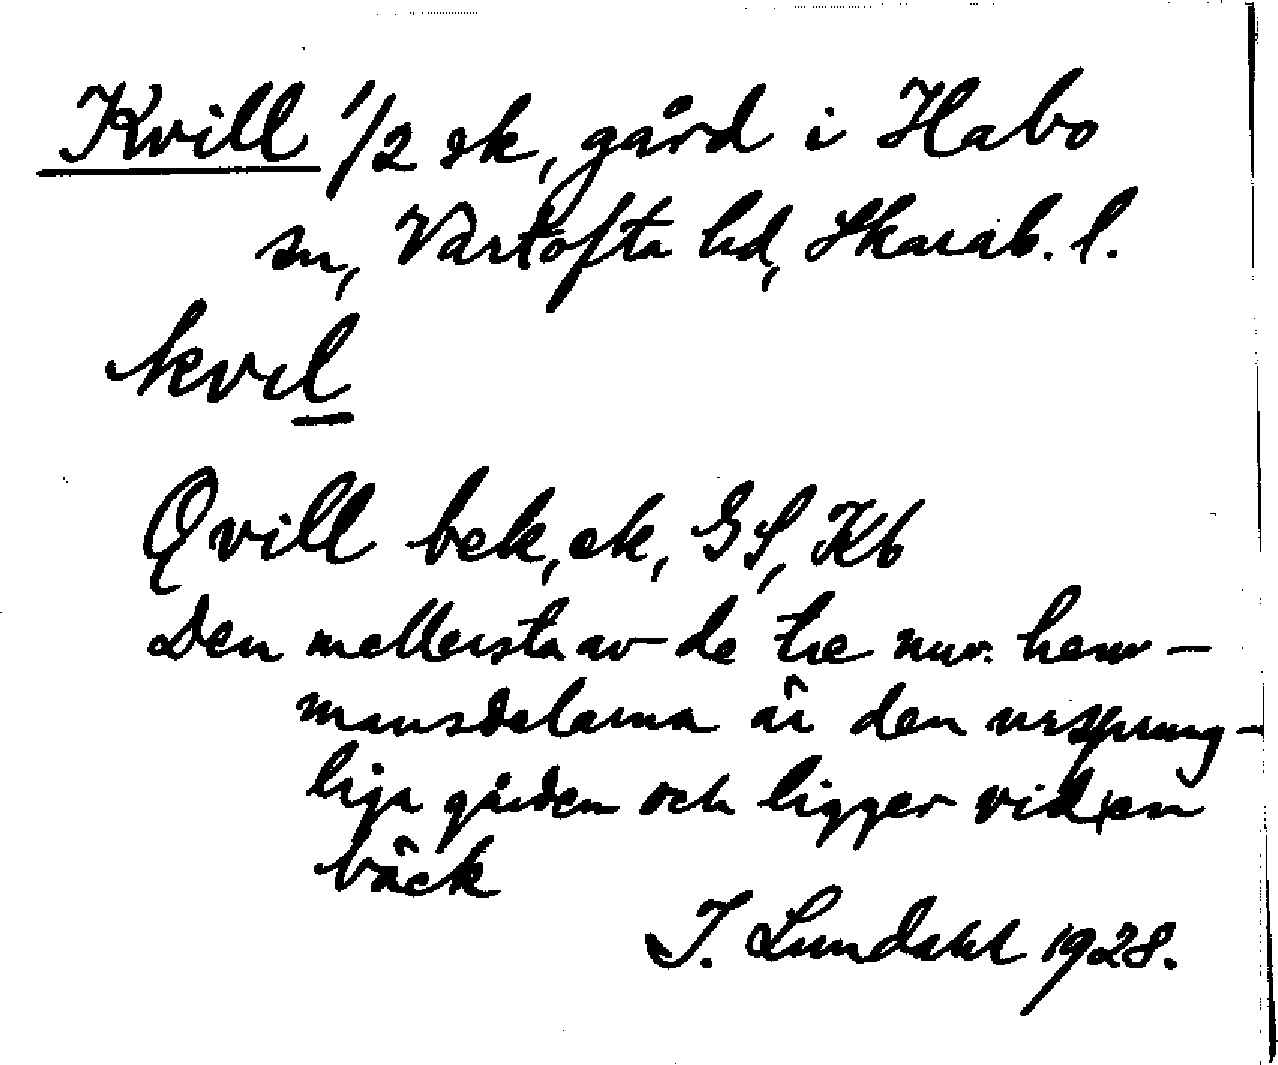 Kvill 1/2 sk, gård i Habo
sn, Vartofta hd, Skarab. l.
kvıl
Qvill bek, ek, GS, Kb
Den mellersta av de tre nuv. hem-
mansdelarna är den ursprung-
liga gården och ligger vid en
bäck
I. Lundahl 1928.